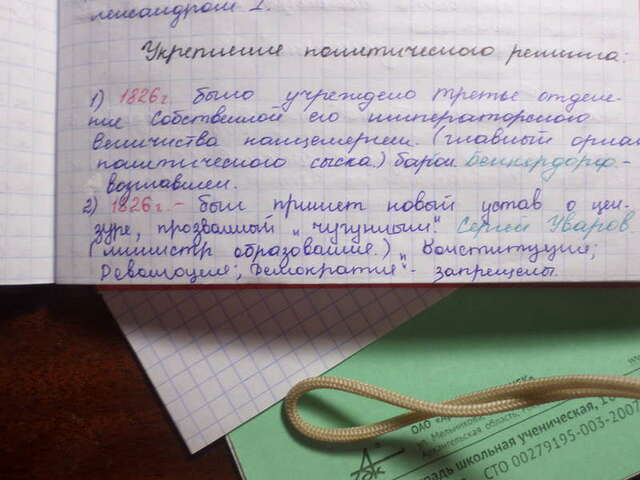 лександром I.
Укрепление политического режима:
1) 1826г. было учреждено третье отделе-
ние Собственной его императорского
Величества канцелярии. (главный орган
политического сыска.) барон Бенкердорф-
возглавлял.
2) 1826г.- был принят новый устав о цен-
зуре, прозванный "чугунным". Сергей Уваров.
(министр образования.) "Конституция;
Революция; Демократия"- запрещены.
ОАО
ул. Мельникова
Архангельская область,
радь школьная ученическая, 1
СТО 00279195-003-2007